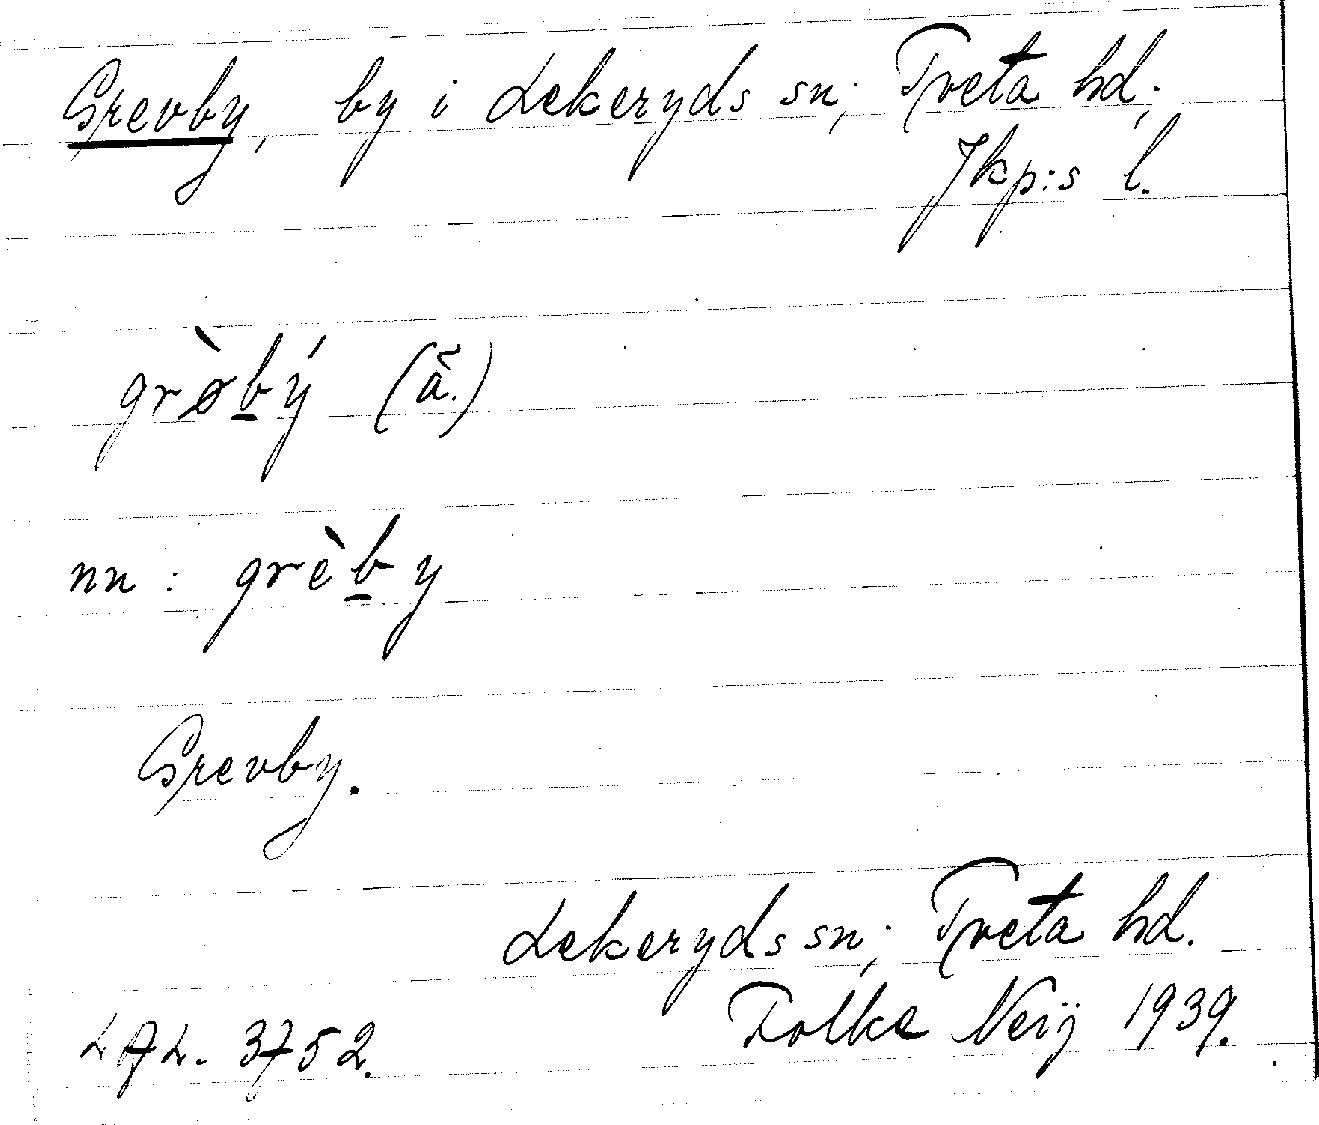 Grevby, by i Lekeryds sn; Tveta hd.
Jkp:s l.
grø̀bý (ä.)
nn: grèby
Grevby.
Lekeryds sn; Tveta hd.
LAL. 3752. Folke Neij 1939.